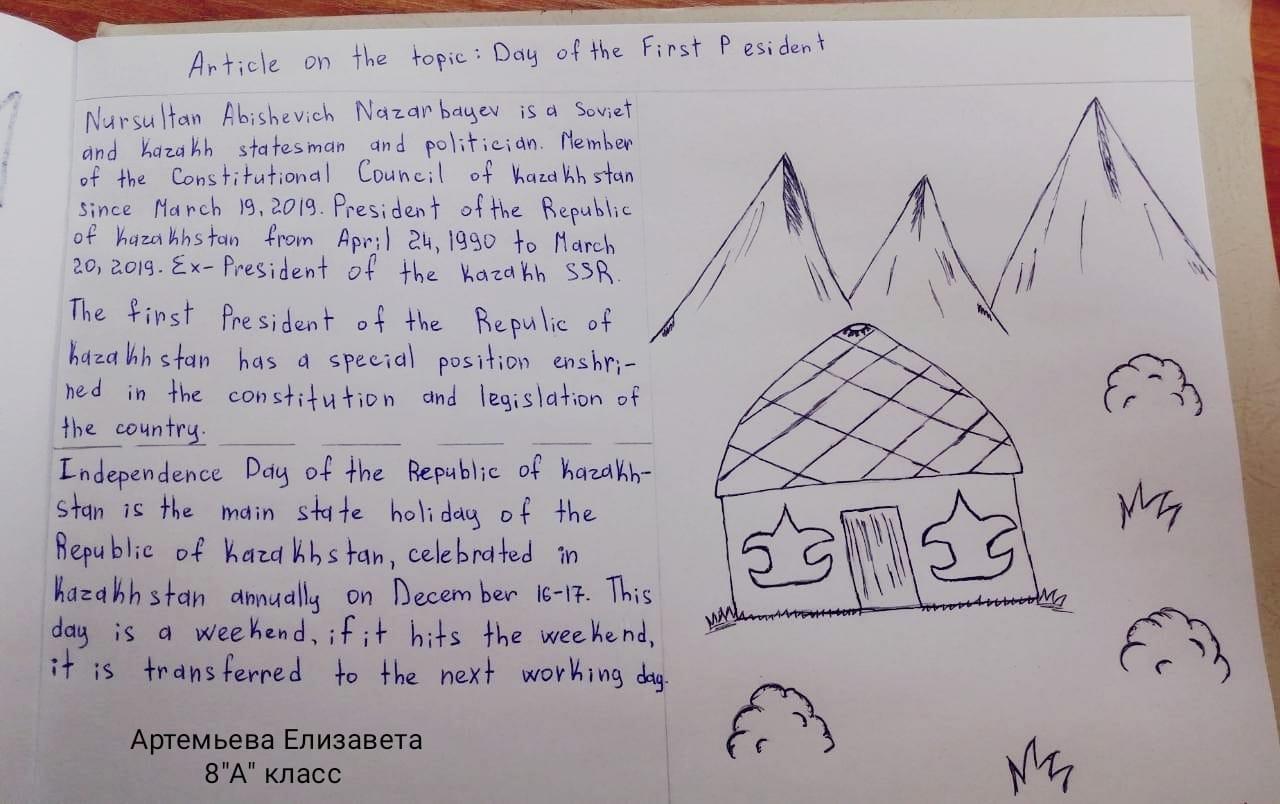 Article on the topic: Day of the First P esident
Nursultan Abishevich Nazarbayev is a Soviet
and Kazakh statesman and politician. Member
of the Constitutional Council of Kazakhstan
since March 19, 2019. President of the Republic
of Kazakhstan from April 24, 1990 to March
20, 2019. Ex-President of the Kazakh SSR.
The first President of the Repulic of
Kazakhstan has a special position enshri-
ned in the constitution and legislation of
the country.
Independence Day of the Republic of Kazakh-
stan is the main state holiday of the
Republic of Kazakhstan, celebrated in
Kazakhstan annually on December 16-17. This
day is a weekend, if it hits the weekend,
it is transferred to the next working day.
Артемьева Елизавета
8"А" класс